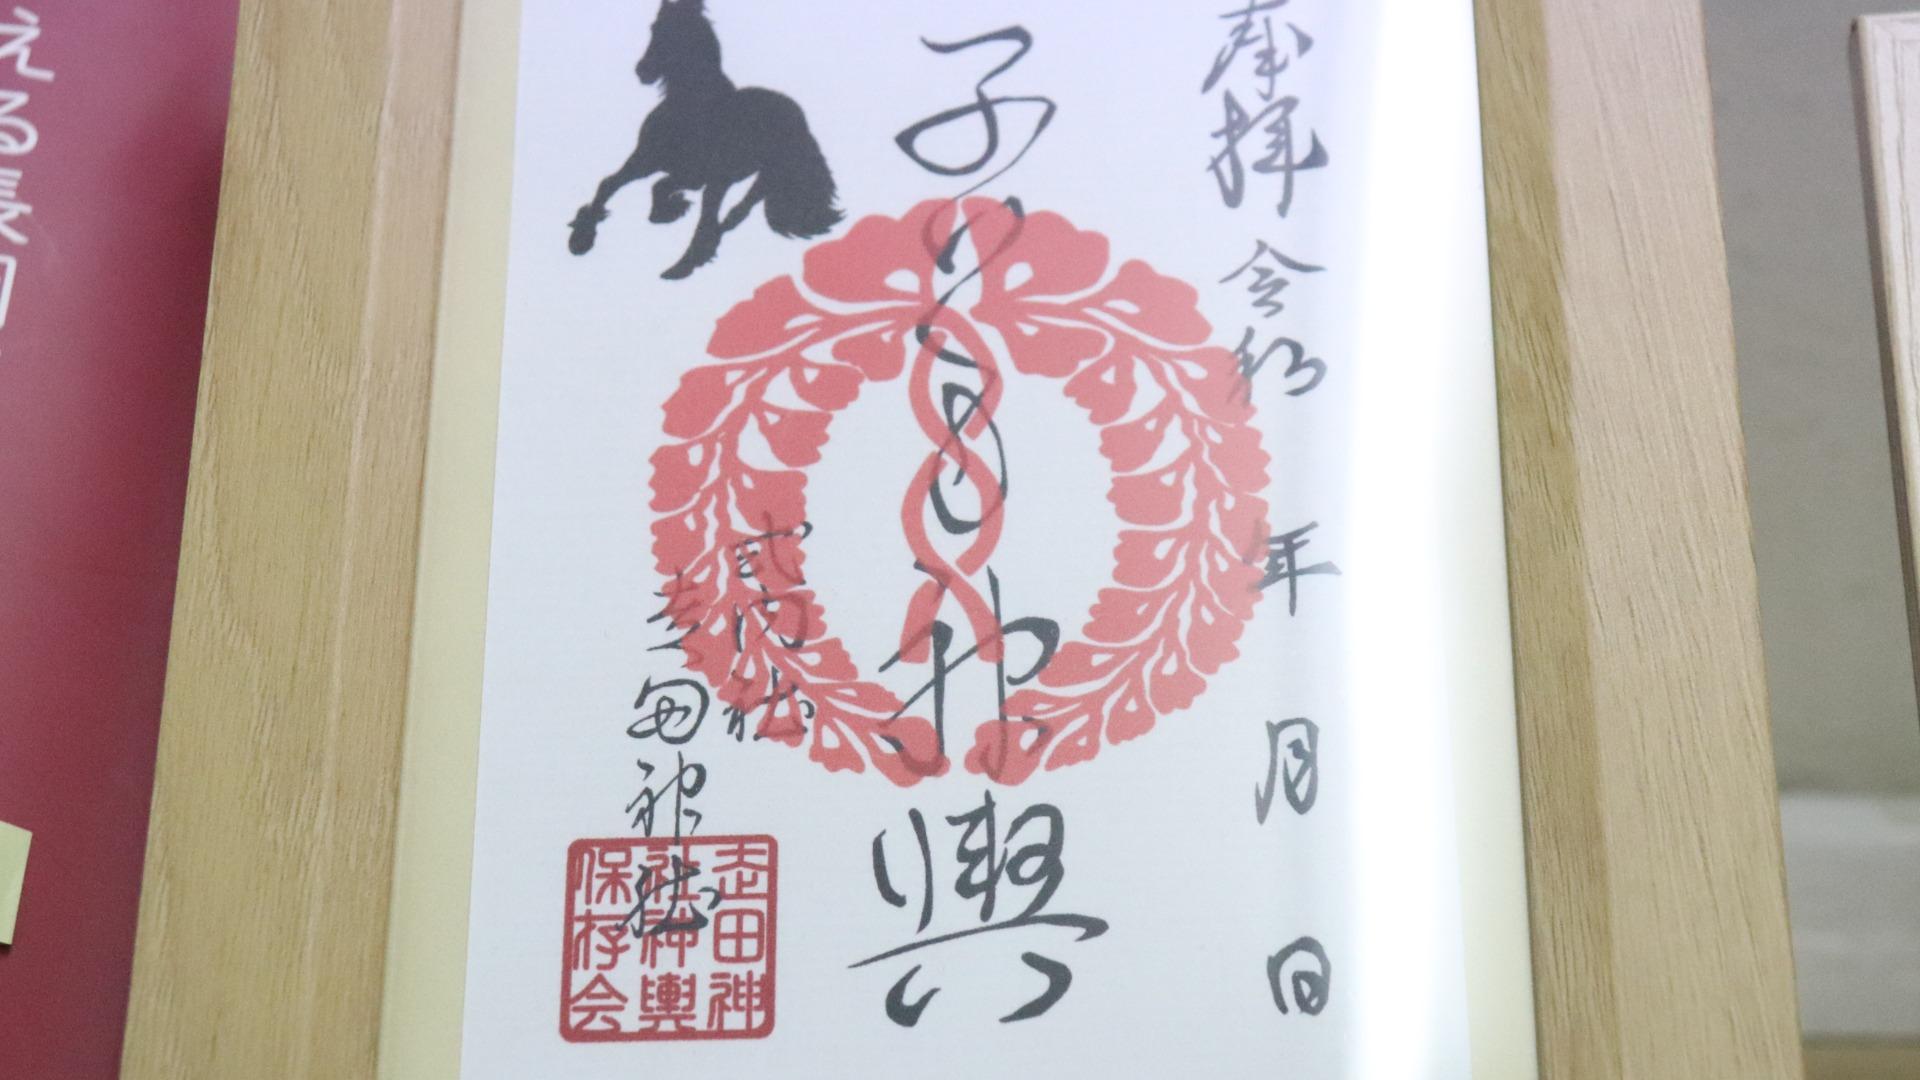 奉拝 令和 年 月 日
子ども神輿
式内社
走田神社
走田神
社神輿
保存会
える長